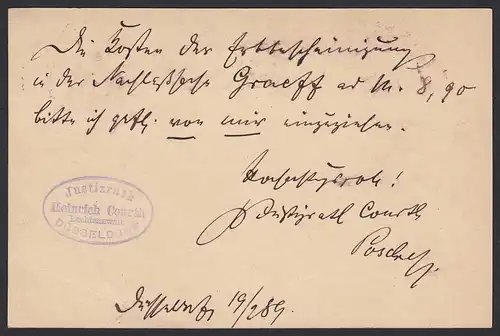 Die Kosten der Erbbescheinigung
in der Nachlaßsache Graeff ad M. 8,90
bitte ich gefl. von mir einzuziehen.
Hochachtungsvoll!
Justizrath Courth
Justizrath
Heinrich Courth
Rechtsanwalt
DÜSSELDORF
Düsseldorf 19/2 89